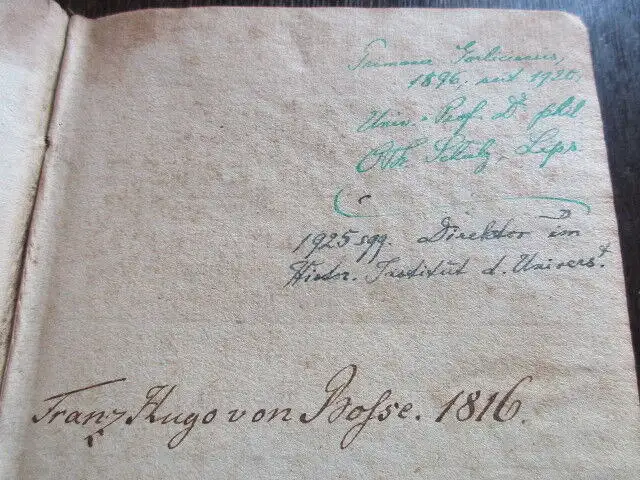 1896, seit 1920,
Univ.-Prof. Dr. phil
Otto Schulz, Lips.
1925 sqq. Direktor im
Histor. Institut d. Universt.
Franz Hugo von Bosse. 1816.